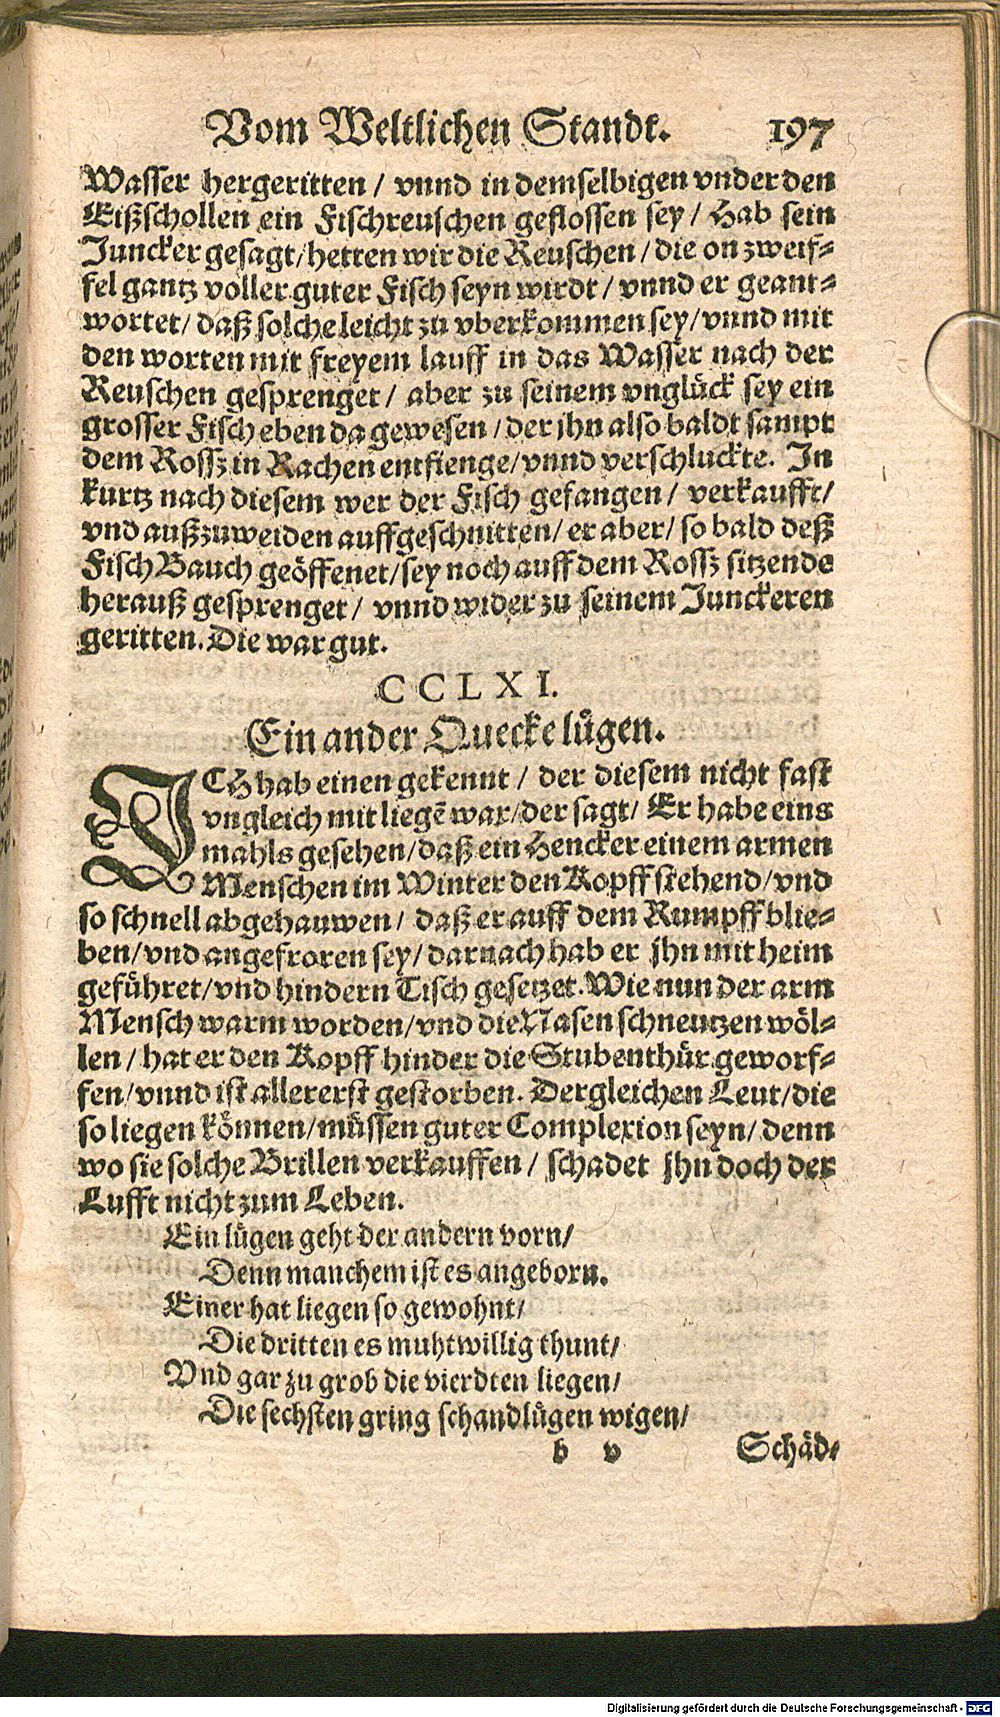 Vom Weltlichen Standt. 197
Wasser hergeritten / vnnd in demselbigen vnder den
Eißschollen ein Fischreuschen geflossen sey / Hab sein
Juncker gesagt / hetten wir die Reuschen / die on zweif-
fel gantz voller guter Fisch seyn wirdt / vnnd er geant-
wortet / daß solche leicht zu vberkommen sey / vnnd mit
den worten mit freyem lauff in das Wasser nach der
Reuschen gesprenget / aber zu seinem vnglück sey ein
grosser Fisch eben da gewesen / der jhn also baldt sampt
dem Rossz in Rachen entfienge / vnnd verschluckte. In
kurtz nach diesem wer der Fisch gefangen / verkaufft /
vnd außzuweiden auffgeschnitten / er aber / so bald deß
Fisch Bauch geöffenet / sey noch auff dem Rossz sitzende
herauß gesprenget / vnnd wider zu seinem Junckeren
geritten. Die war gut.
CCLXI.
Ein ander Quecke lügen.
ICH hab einen gekennt / der diesem nicht fast
vngleich mit liegẽ war / der sagt / Er habe eins
mahls gesehen / daß ein Hencker einem armen
Menschen im Winter den Kopff stehend / vnd
so schnell abgehauwen / daß er auff dem Rumpff blie-
ben / vnd angefroren sey / darnach hab er jhn mit heim
geführet / vnd hindern Tisch gesetzet. Wie nun der arm
Mensch warm worden / vnd die Nasen schneutzen wöl-
len / hat er den Kopff hinder die Stubenthür geworf-
fen / vnnd ist allererst gestorben. Dergleichen Leut / die
so liegen können / müssen guter Complexion seyn / denn
wo sie solche Brillen verkauffen / schadet jhn doch der
Lufft nicht zum Leben.
Ein lügen geht der andern vorn /
Denn manchem ist es angeborn.
Einer hat liegen so gewohnt /
Die dritten es muhtwillig thunt /
Vnd gar zu grob die vierdten liegen /
Die sechsten gring schandlügen wigen /
b v Schäd-
Digitalisierung gefördert durch die Deutsche Forschungsgemeinschaft - DFG